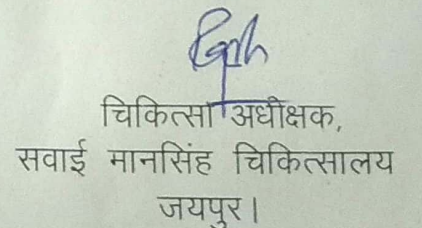 चिकित्सा अधीक्षक,
सवाई मानसिंह चिकित्सालय
जयपुर।